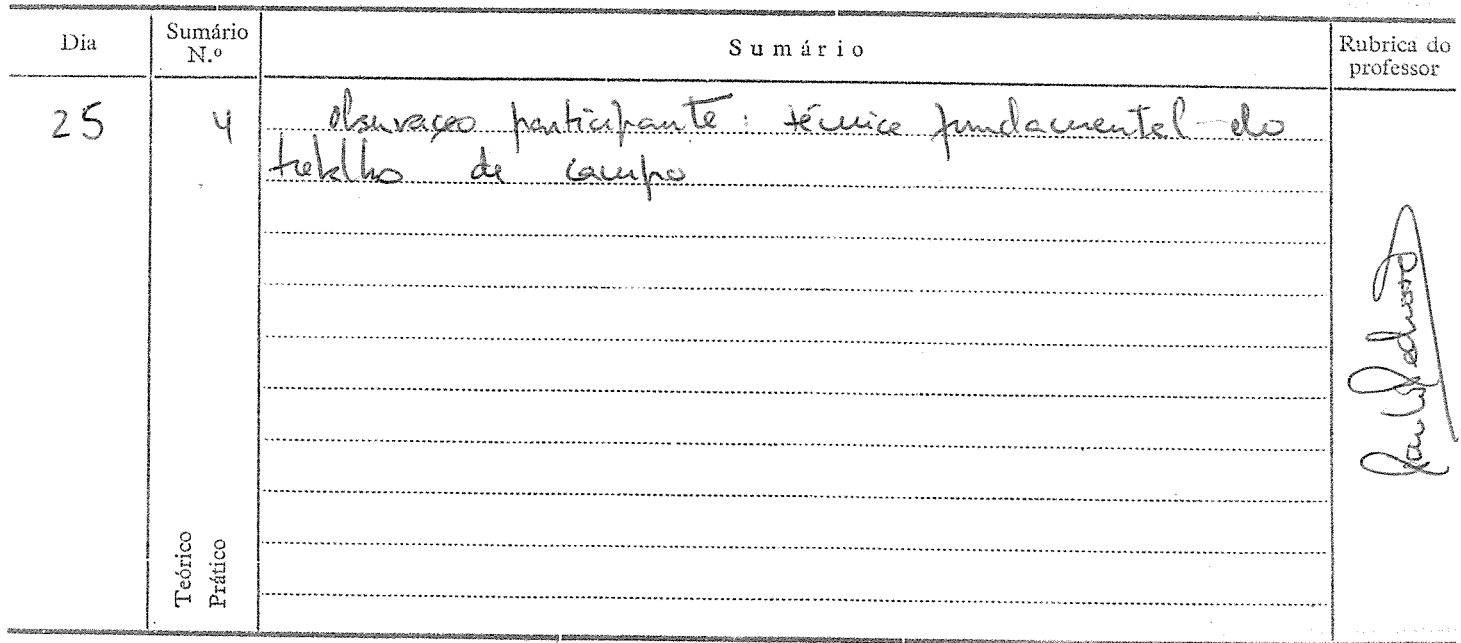 Dia
Sumário
N.º
Sumário
Rubrica do
professor
25
4
Observação participante: técnica fundamental do
trabalho de campo
Teórico
Prático